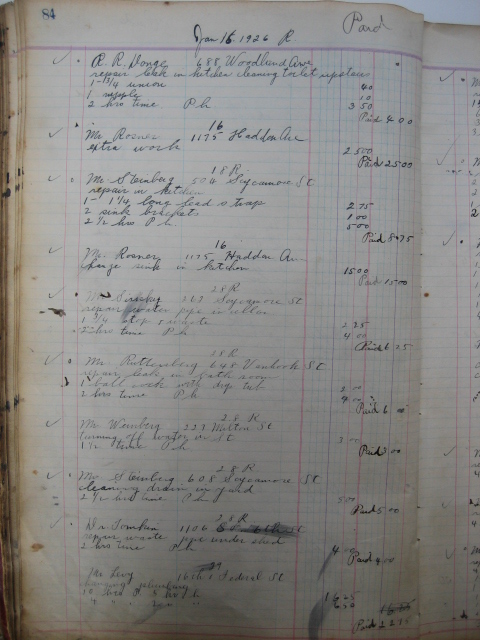 84
Jan 16 1926 R. Paid
R. R. Donge 688 Woodlund Ave
repair leak in kitchen cleaning toilet upstairs
1 - 1 3/4 union 40
1 nipple 10
2 hrs time P.h 3 50
Paid 4 00
16
Mr. Rosner 1175 Haddon Ave
extra work 25 00
Paid 25 00
18 R
Mr. Steinberg 504 Sycamore St
repair in kitchen
1 - 1 1/4 long lead s trap 2 75
2 sink brackets 1 00
2 1/2 hrs P.h. 5 00
Paid 8 75
16
Mr. Rosner 1175 Haddon Ave
change sink in kitchen 15 00
Paid 15 00
28 R
Mr. 263 Sycamore St
repair water pipe in cellar
1 3/4 stop & waste 2 25
2 hrs time P.h 4 00
Paid 6 25
28 R
Mr. Ruttenberg 645 St
repair leak in bath room
1 ball cock with 2 00
2 hrs time P.h 4 00
Paid 6 00
28 R
Mr Weinberg 223 Milton St
turning off water on St
1 1/2 time P.h 3 00
Paid 3 00
28 R
Mr. Steinberg 608 Sycamore St
cleaning drain in yard
2 1/2 hrs time P.h 5 00
Paid 5 00
28 R
1106 St
repair waste pipe under shed
2 hrs time P.h 4 00
Paid 4 00
29
Levy Federal St
10 hrs 16 25
6 50
Paid 22 75